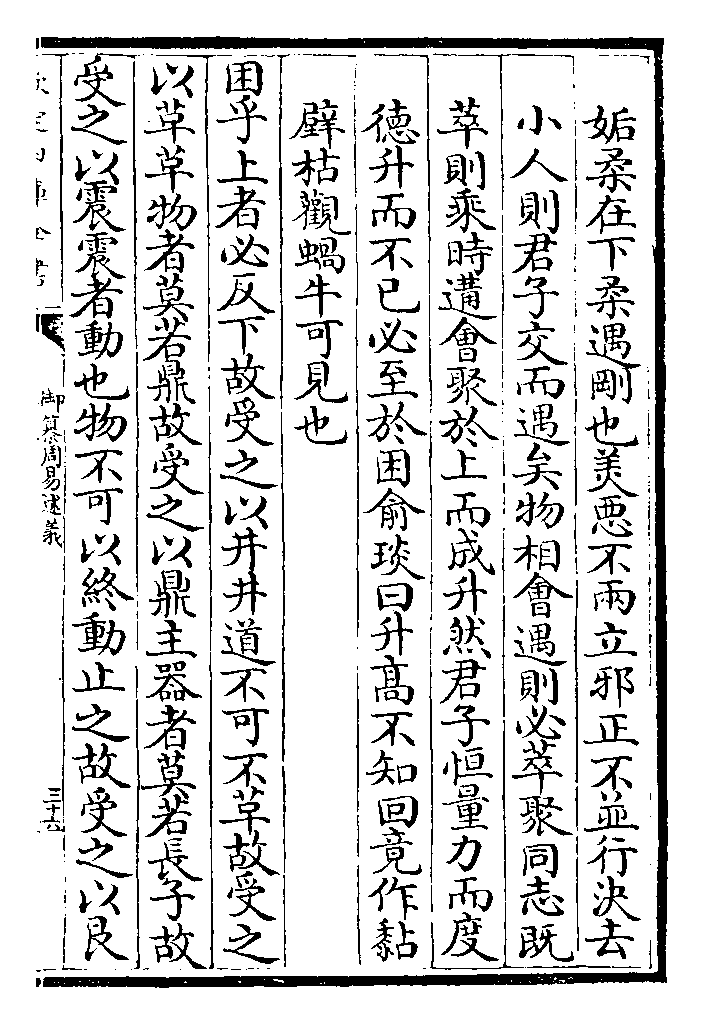 姤柔在下柔遇剛也美惡不兩立邪正不並行決去
小人則君子交而遇矣物相會遇則必萃聚同志既
萃則乘時遘會聚於上而成升然君子恒量力而度
德升而不已必至於困俞琰曰升髙不知回竟作黏
壁枯觀蝸牛可見也
困乎上者必反下故受之以井井道不可不革故受之
以革革物者莫若鼎故受之以鼎主器者莫若長子故
受之以震震者動也物不可以終動止之故受之以艮
欽定四庫全書
御纂周易述義
三十六